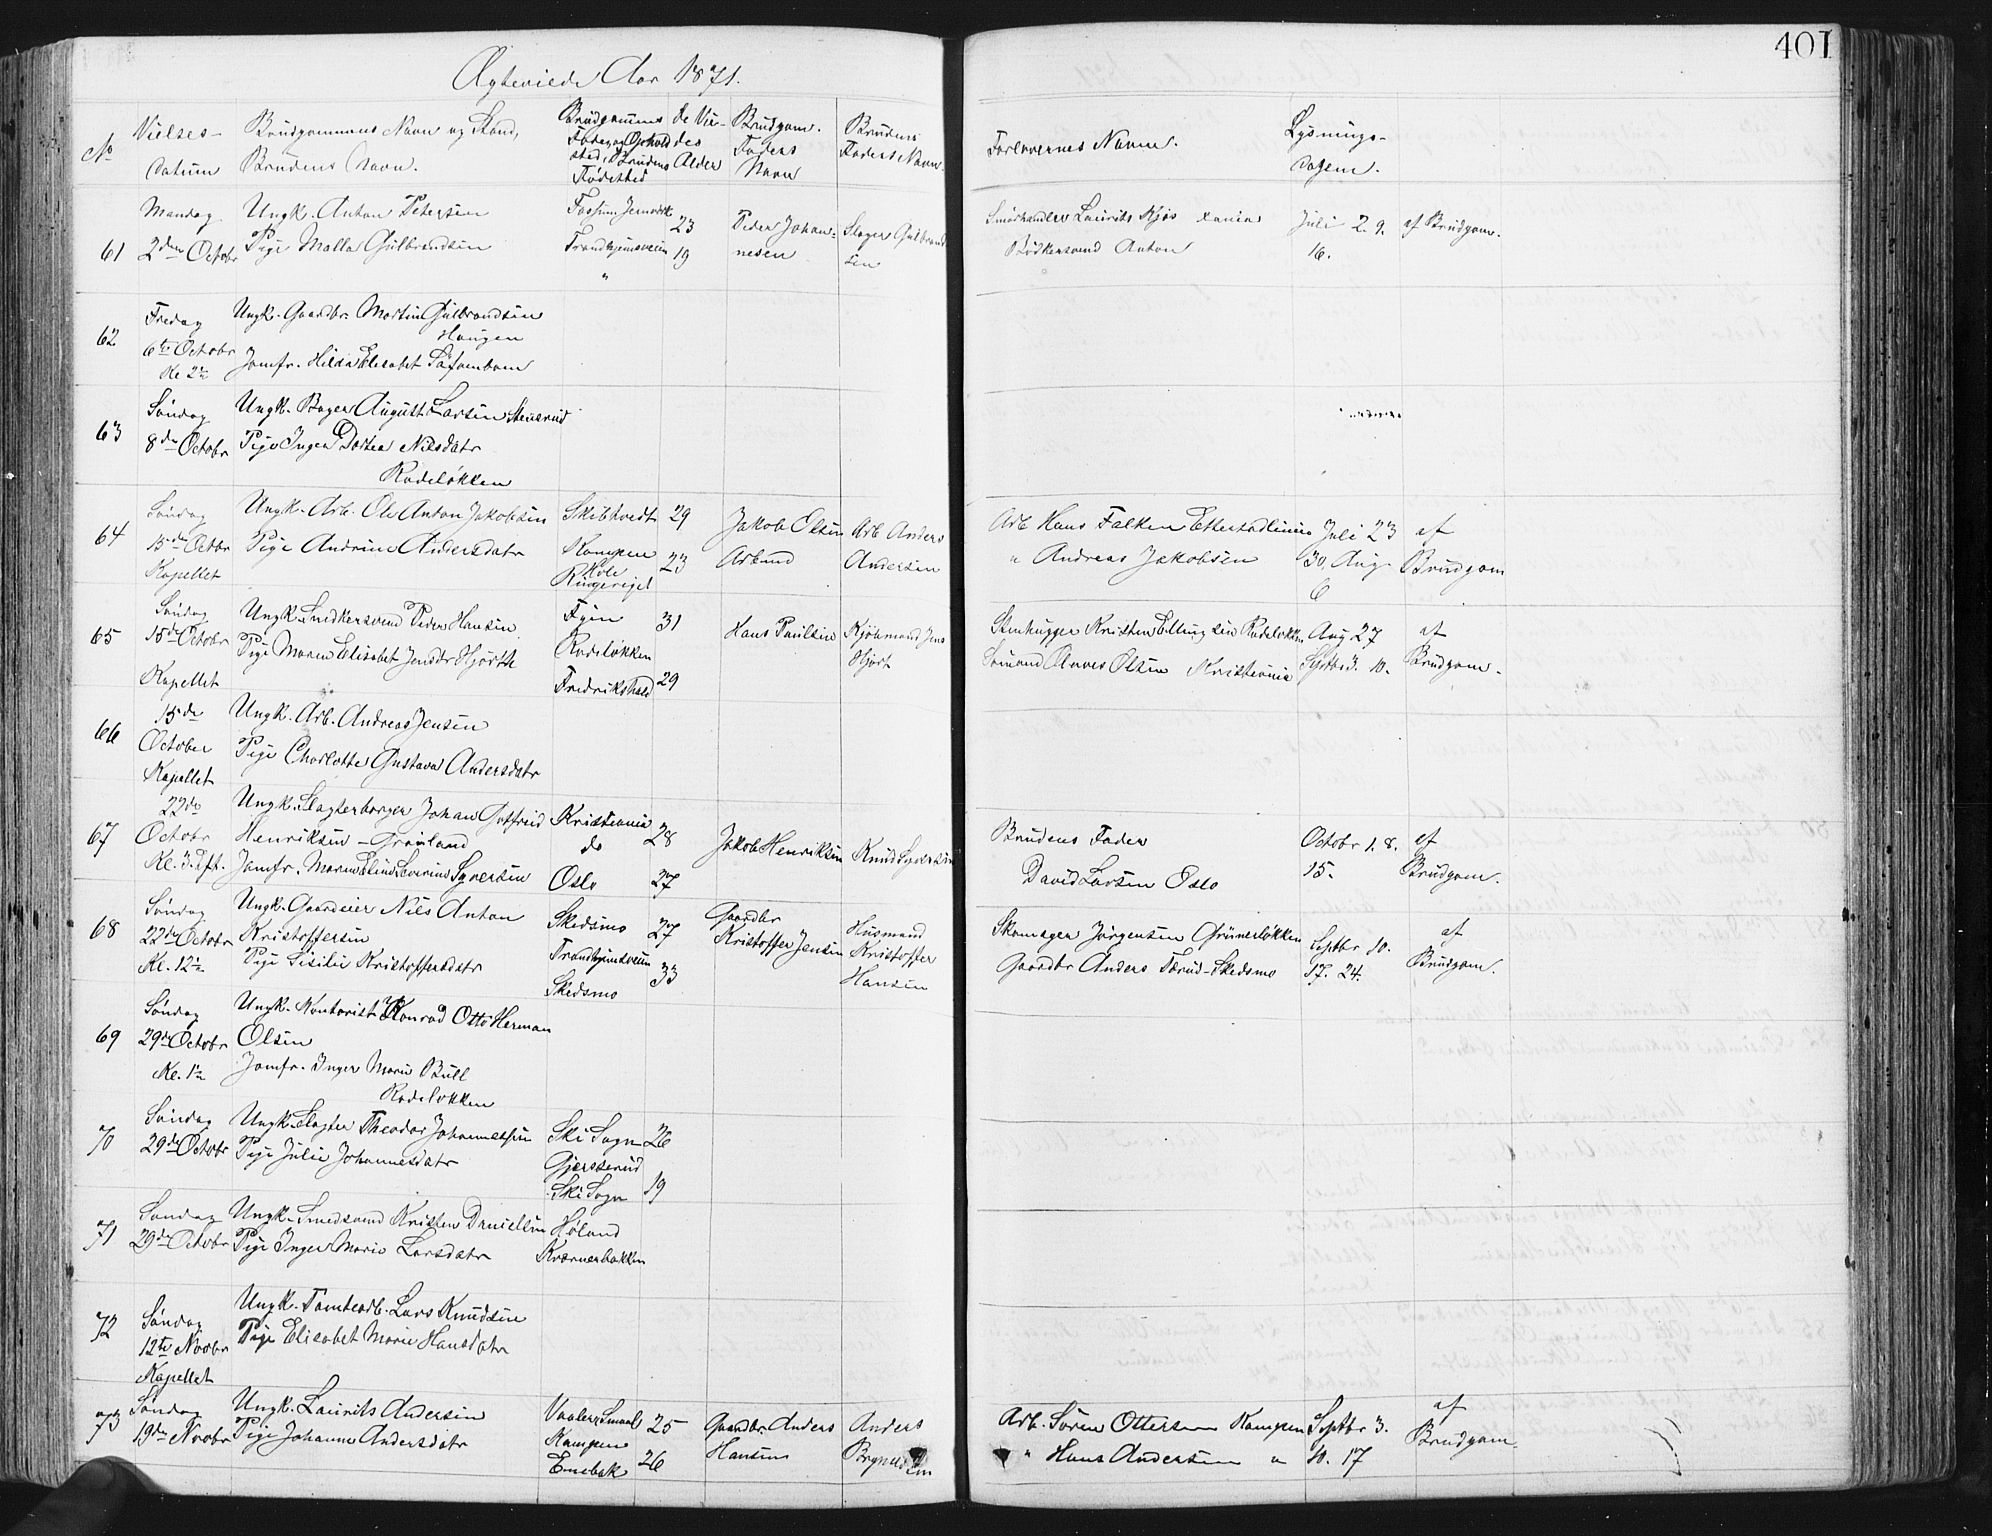 401
Ægteviede Aar 1871.
No
Vielses-
Datum
Brudgommens Navn og Stand,
Brudens Navn.
Brudgommens
Føde og Ophold
sted, Brudens
Fødested
de Vie-
des
Alder
Brudgom.
Faders
Navn
Brudens
Faders Navn.
Forlovernes Navne.
Lysnings-
Dagene.
61
Mandag
2den Octobr
Ungk. Anton Petersen
Pige Malla Gulbrandsen
Fossum Jernværk
Trondhjemsveien
"
23
19
Peder Johan-
nesen
Gulbrand
sen
Laurits Kjøs Xania
Bødkersvend Anton
Juli 2. 9.
16.
af Brudgom.
62
Fredag
6te Octobr
Kl. 2½
Ungk. Gaardbr. Martin Gulbrandsen
Haugen
Jomfr. Hilda Elisabet
63
Søndag
8de Octobr
Ungk. Bager August Larsen Stenerud
Pige Inger Dortea Nilsdatr
Rodeløkken
64
Søndag
15de Octbr
Kapellet
Ungk. Arb. Ole Anton Jakobsen
Pige Andrine Andersdatr
Skibtvedt
Kampen
Hole
Ringeriget
29
23
Jakob Olsen
Arbmd
Arb Anders
Andersen
Arb Hans Falken Ekerstadlinien
" Andreas Jakobsen
Juli 23
30, Aug
6
af
Brudgom
65
Søndag
15de Octobr
Kapellet
Ungk. Snedkersvend Peder Hansen
Pige Maren Elisabet Jensdtr Hjorth
Fyen
Rodeløkken
Fredrikshald
31
29
Hans Paulsen
Kjøbmand Jens
Hjort
Stenhugger Kristen Ellingsen Rodeløkken
Sømand Olsen Kristiania
Aug 27
Septbr 3. 10.
af
Brudgom.
66
15de
October
Kapellet
Ungk. Arb. Andreas Jensen
Pige Charlotte Gustava Andersdatr
67
22de
Octobr
Kl. 3. Eft.
Ungk. Slagterborger Johan Gotfried
Henriksen - Grønland
Jomfr. Maren Eline Severine Syversen
Kristiania
do
Oslo
28
27
Jakob Henriksen
Knud Syversen
Brudens Fader
David Larsen Oslo
Octobr 1. 8.
15.
af
Brudgom.
68
Søndag
22de Octobr
Kl. 12½
Ungk. Gaardeier Nils Anton
Kristoffersen
Pige Sisilie Kristoffersdatr
Skedsmo
Trondhjemsveien
Skedsmo
27
33
Gaardbr
Kristoffer Jensen
Husmand
Kristoffer
Hansen
Skomager Jørgensen Grünerløkken
Gaardbr Anders Tærud - Skedsmo
Septbr 10.
17. 24.
af
Brudgom.
69
Søndag
29de Octobr
Kl. 1½
Ungk. Kontorist Konrad Otto Herman
Olsen
Jomfr. Inger Marie Bull
Rodeløkken
70
Søndag
29de Octobr
Ungk. Slagter Theodor Johannessen
Pige Julie Johannesdatr
Ski Sogn
Gjersserud
Ski Sogn
26
19
71
Søndag
29de Octobr
Ungk. Smedsvend Kristen Danielsen
Pige Inger Marie Larsdatr
Høland
Kværnerbakken
72
Søndag
12te Novbr
Kapellet
Ungk. Tomtearb. Lars Knudsen
Pige Elisabet Marie Hansdatr
73
Søndag
19de Novbr
Ungk. Laurits Andersen
Pige Johanne Andersdatr
Vaaler, Smaal
Kampen
Enebak
25
26
Gaardbr. Anders
Hansen
Anders
Arb. Søren Ottersen Kampen
" Hans Andersen "
Septbr 3.
10. 17
af
Brudgom.